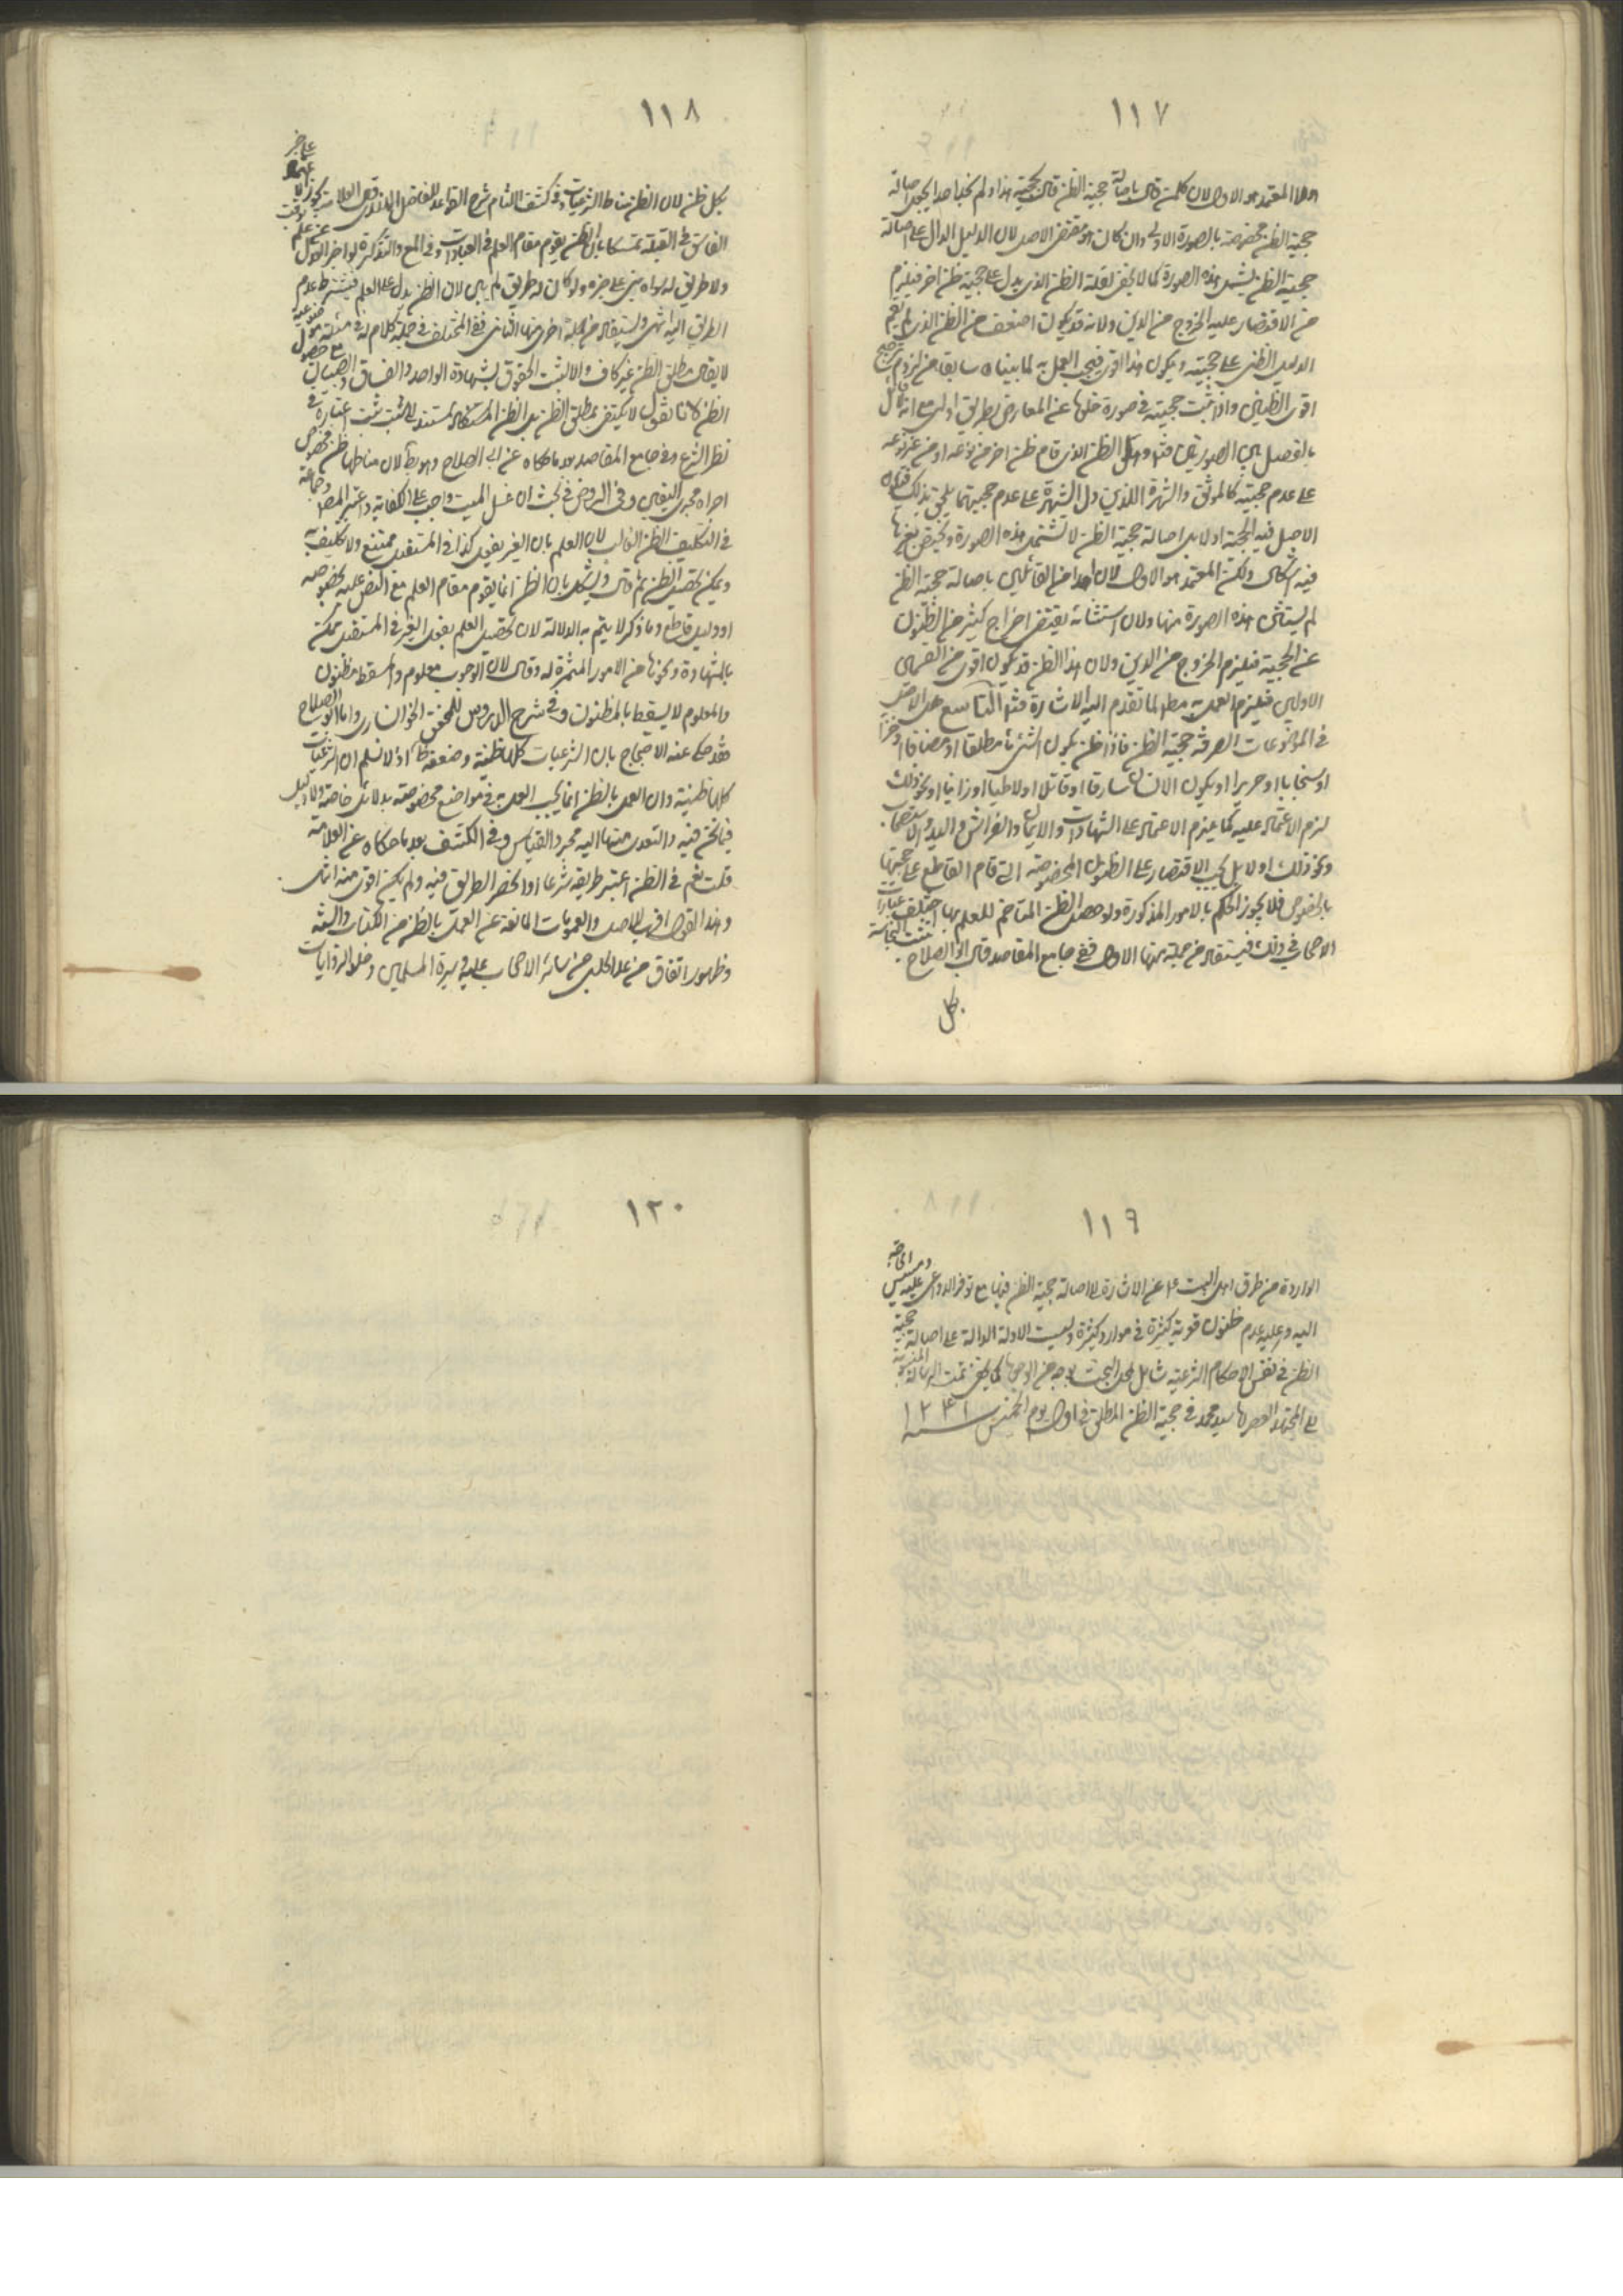 ١١٧
المعتمد هو الاول لان كل من قال باصالة حجية الظن قال بحجية هذا ولم نجد احدا يجعل اصالة
حجية الظن مختصة بالصورة الاولى وان كان هو مقتضى الاصل لان الدليل الدال على اصالة
حجية الظن يشمل هذه الصورة كما لا يخفى لقلة الظن الذى يدل على حجية ظن اخر فيلزم
من الاقتصار عليه الخروج من الدين ولانه قد يكون اضعف من الظن الذى لم يقم
الدليل الظنى على حجيته ويكون هذا اقوى فيجب العمل به لما بيناه سابقا من لزوم ترجيح
اقوى الظنين واذا ثبت حجيته فى صورة خلوها عن المعارض بطريق اولى مع انه لا قائل
بالفصل بين الصورتين وهل الظن الذى قام ظن اخر من نوعه او من غير نوعه
على عدم حجيته كالموثق والشهرة اللذين دل الشهرة على عدم حجيتهما يلحق بذلك
الاصل فيه الحجية او لا بل اصالة حجية الظن لا تشمل هذه الصورة وتختص بغيرها
فيه اشكال ولكن المعتمد هو الاول لان احدا من القائلين باصالة حجية الظن
لم يستثن هذه الصورة منها ولان استثنائه يقتضى اخراج كثير من الظنون
عن الحجية فيلزم الخروج من الدين ولان هذا الظن قد يكون اقوى من القسمين
الاولين فيلزم العمل به مطلقا لما تقدم اليه الاشارة التاسع هل الاصل
فى الموضوعات الصرفة حجية الظن فاذا ظن بكون الشئ ماء مطلقا او مضافا او خزا
او سنجابا او حريرا او بكون الانسان سارقا او قاتلا او لاطيا او زانيا او نحو ذلك
لزم الاعتماد عليه كما يلزم الاعتماد على الشهادات والايمان والفراش واليد والاستصحاب
ونحو ذلك او لا بل يجب الاقتصار على الظنون المخصوصة التى قام القاطع على حجيتها
بالخصوص فلا يجوز الحكم بالامور المذكورة ولو حصل الظن المتاخم للعلم بها اختلف عبارات
الاصحاب فى ذلك فيستفاد من جملة منها الاول ففى جامع المقاصد قال ابو الصلاح يثبت النجاسة
بكل
١١٨
بكل ظن لان الظن مناط الشرعيات وفى كشف اللثام شرح القواعد للفاضل الهندى
الفاسق فى القبلة تمسكا بان الظن يقوم مقام العلم فى العبادات وفى المع والتذكرة لو اخبر العدل عن علم
ولا طريق له سواه بنى على خبره ولو كان له طريق لم يبن لان الظن بدل على العلم فيشترط عدم
الطريق اليه انتهى ويستفاد من جملة اخرى منها الثانى ففى المختلف فى جملة كلام له فى مسئلة
لا يقال مطلق الظن غير كاف والا لثبت الحقوق بشهادة الواحد والفساق والصبيان مع حصول
الظن لانا نقول لا نكتفى بمطلق الظن بل الظن المستند الى سبب ثبت اعتباره فى
نظر الشرع وفى جامع المقاصد بعد ما حكاه عن ابى الصلاح وهو بط لان مناطها ظن مخصوص
اجراه مجرى اليقين وفى الروض فى بحث ان غسل الميت واجب على الكفاية واعتبر المص وجماعة
فى التكليف الظن الغالب لان العلم بان الغير يفعل كذا فى المستقبل ممتنع ولا تكليف به
ويمكن تحصيل الظن ثم قال ويشكل بان الظن انما يقوم مقام العلم مع النص عليه بخصوصه
او دليل قاطع وما ذكر لا يتم به الدلالة لان تحصيل العلم بفعل الغير فى المستقبل ممكن
بالمشاهدة ونحوها من الامور المثمرة له وقال لان الوجوب معلوم والمسقط مظنون
والمعلوم لا يسقط بالمظنون وفى شرح الدروس للمحقق الخوانسارى واما ابو الصلاح
فقد حكى عنه الاحتجاج بان الشرعيات كلها ظنية وضعفه ظ اذ لا نسلم ان الشرعيات
كلها ظنية وان العمل بالظن انما يجب العمل به فى مواضع مخصوصة بدلائل خاصة ولا دليل
فيما نحن فيه والتعدى منها اليه مجرد القياس وفى الكشف بعد ما حكاه عن العلامة
قلت نعم فى الظن اعتبر طريقه شرعا او انحصر الطريق فيه ولم يكن اقوى منه انتهى
وهذا القول اقرب للاصل والعمومات المانعة عن العمل بالظن من الكتاب والسنة
وظهور اتفاق من عدا الحلبى من سائر الاصحاب عليه سيرة المسلمين وخلو الروايات
١١٩
الواردة من طرق اهل البيت ع عن الاشارة لاصالة حجية الظن فيها مع توفر الدواعى عليه ومسيس الحاجة
اليه وعليه عدم ظنون قوية كثيرة فى موارد كثيرة وليست الادلة الدالة على اصالة حجية
الظن فى نفس الاحكام الشرعية شامل لمحل البحث بوجه من الوجوه كما لا يخفى تمت الرسالة المنسوبة
الى المجتهد العصر سيد محمد فى حجية الظن المطلق فى اول يوم الخميس سنة ١٢٤١
١٢٠